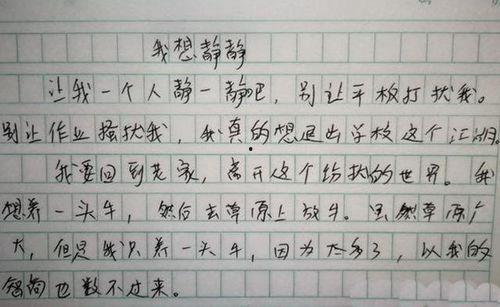 我想静静
让我一个人静一静吧，别让平板打扰我。
别让作业搔扰我，我真的想退出学校这个江湖。
我要回到老家，离开这个纷扰的世界。我
想养一头牛，然后去草原上放牛。虽然草原广
大，但是我只养一头牛，因为太多了，以我的
智商也数不过来。